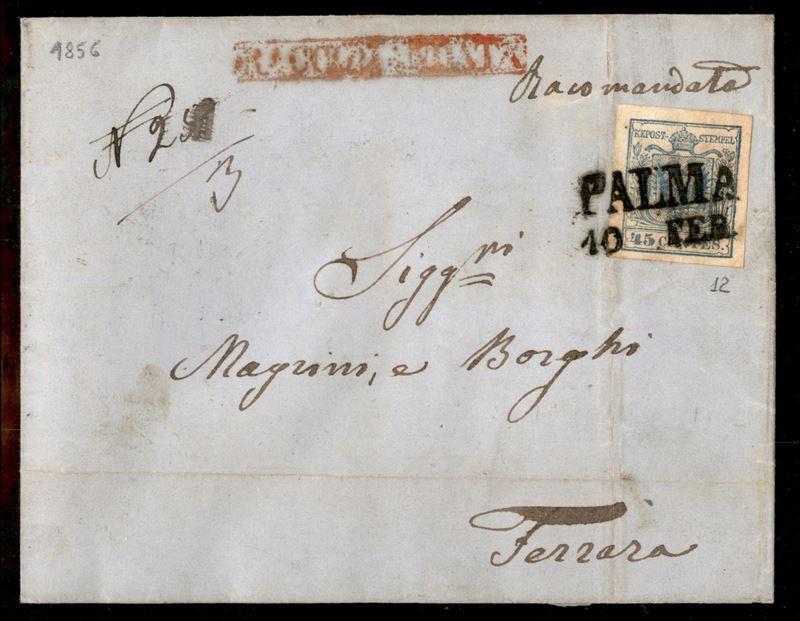 1856
RACCOMANDATA
Racomandata
N 2
3
KKPOST-STEMPEL
PALMA
10 FEB.
45 CENTES.
12
Sigg.ri
Magrini, e Borghi
Ferrara